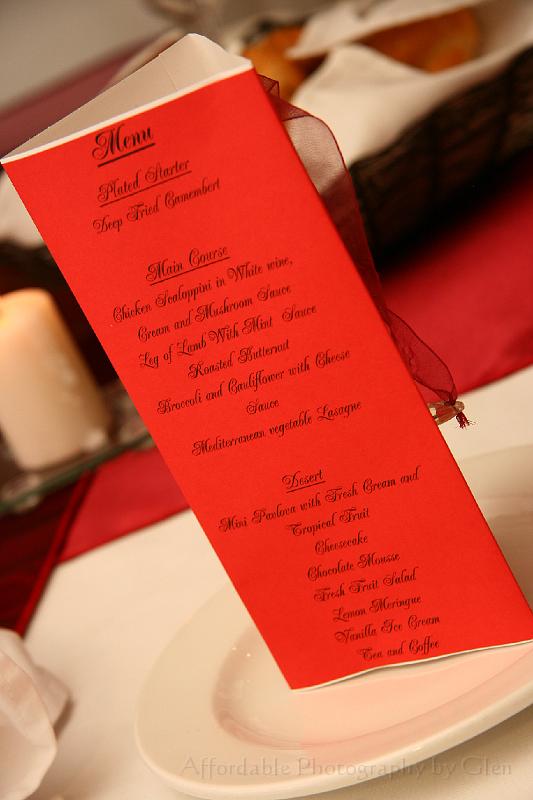 Menu
Plated Starter
Deep Fried Camembert
Main Course
Chicken Scaloppini in White wine,
Cream and Mushroom Sauce
Leg of Lamb With Mint Sauce
Roasted Butternut
Broccoli and Cauliflower with Cheese
Sauce
Mediterranean vegetable Lasagne
Desert
Mini Pavlova with Fresh Cream and
Tropical Fruit
Cheesecake
Chocolate Mousse
Fresh Fruit Salad
Lemon Meringue
Vanilla Ice Cream
Tea and Coffee
Affordable Photography by Glen